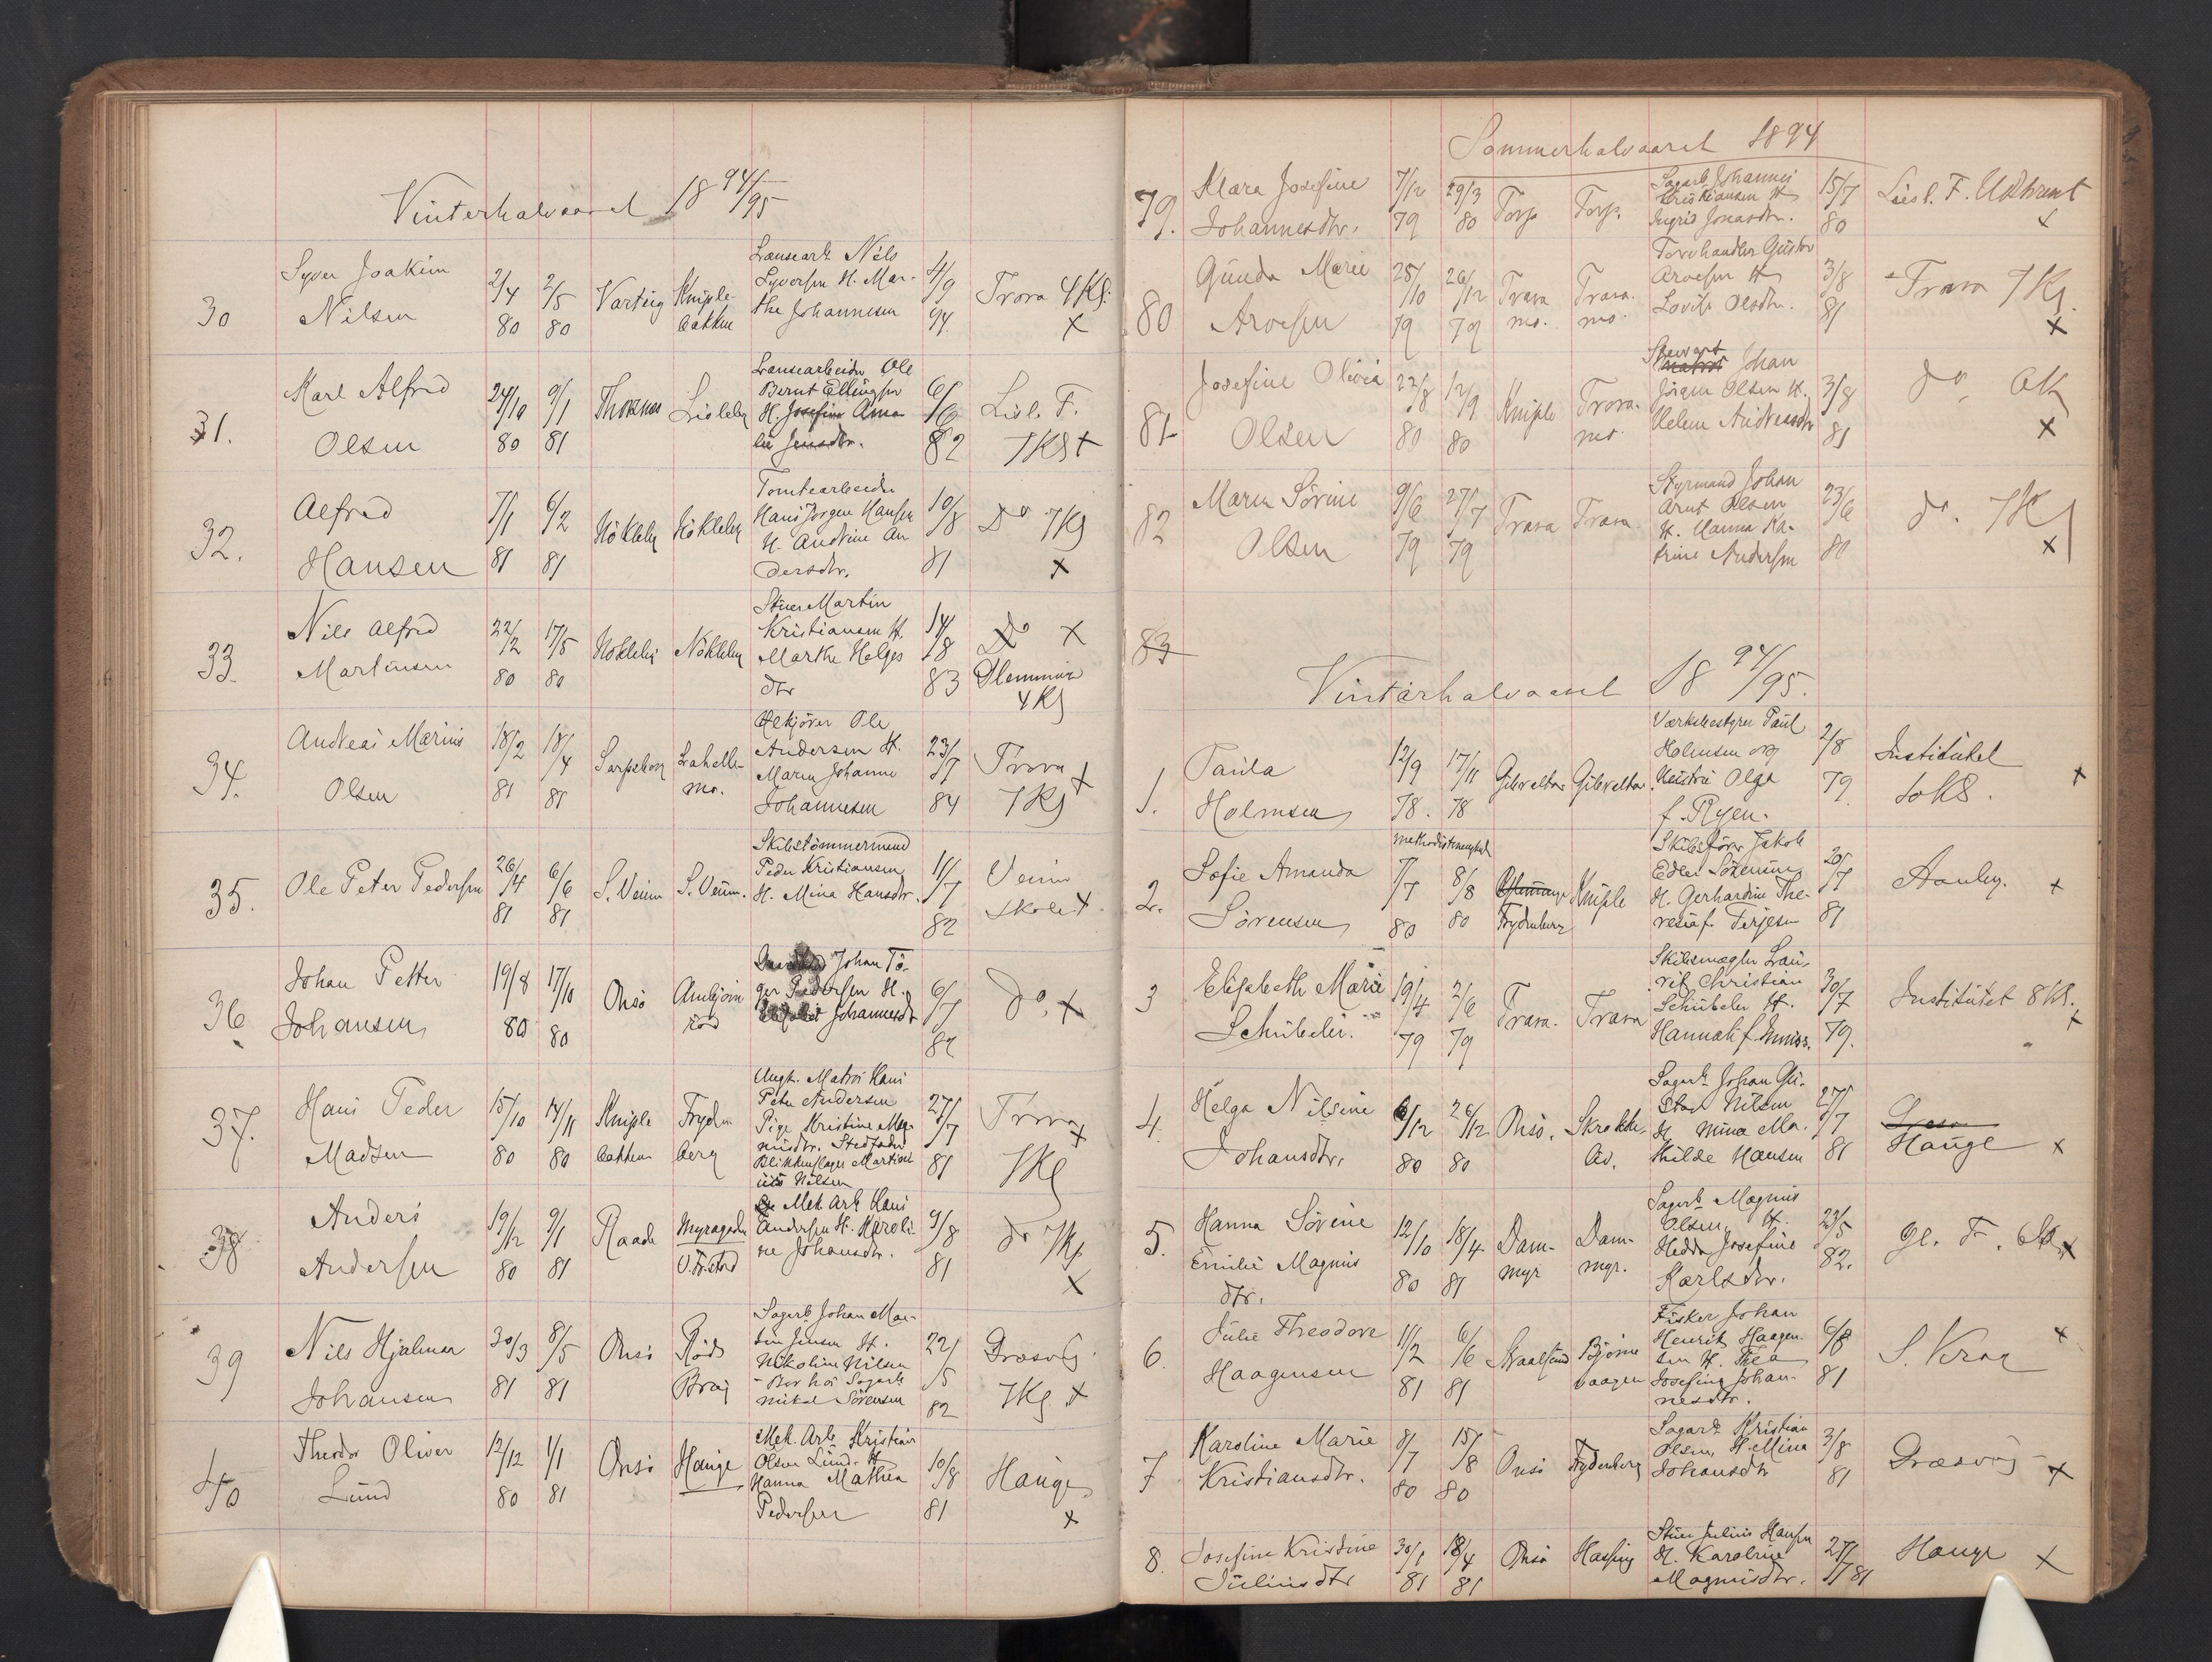 Vinterhalvaaret 18 94/95
30 Syver Joakim Nilsen 2/4 80 2/5 80 Varteig Kniple bakken Lænsearb. Nils Syversen H. Marthe Johannesen 4/9 94 Trara 4 Kl. x
31. Karl Alfred Olsen 24/10 80 9/1 81 Lisleby Lænsearbeider Ole Bernt Ellingsen H. Josefine Amalie Jensdtr. 6/6 82 Lisl. F. 7 Kl x
32. Alfred Hansen 7/1 81 6/2 81 Nökleby Nökleby Tomtearbeider Hans Jörgen Hansen H. Andrine Andersdtr. 10/8 81 Do 7 Kl x
33. Nils Alfred Martinsen 22/2 80 17/5 80 Nökleby Nökleby Stuer Martin Kristiansen H. Marthe Helgesdtr 14/8 83 Do x Glemminge 4 Kl
34. Andreas Marius Olsen 18/2 81 18/4 81 Sarpsborg Lahellemo. Ole Andersen H. Maren Johanne Johannesen 23/7 84 Trara 7 Kl x
35. Ole Peter Pedersen 26/4 81 6/6 81 S. Veum S. Veum. Skibstömmermand Peder Kristiansen H. Mina Hansdtr. 11/7 82 Veum Skole x
36 Johan Petter Johansen 19/8 80 17/10 80 Onsö Ambjörnröd Johan Töger Pedersen H. Johannesdt 6/7 82 do. x
37. Hans Peder Madsen 15/10 80 14/11 80 Kniple bakken Frydenberg Ungk. Matros Hans Peter Andersen Pige Kristine Magnusdtr. Stedfader Blikkenslager Martinius Nilsen 27/7 81 Trara 7 Kl x
38 Anders Andersen 19/12 80 9/1 81 Raade Myragaden V. Fr.stad Mek. Arb. Hans Andersen H. Karoline Johansdtr. 9/8 81 do 7 Kl x
39 Nils Hjalmar Johansen 30/3 81 8/5 81 Onsö Röds Brag Sagarb. Johan Martin Jensen H. Nikoline Nilsen - Bor hos Sagarb. Mikal Sörensen 22/5 82 Græsvig 7 Kl. x
40 Theodor Oliver Lund 12/12 80 1/1 81 Onsö Hauge Mek. Arb. Kristian Olsen Lund. H. Hanna Mathea Pedersen 10/8 81 Hauge x
Sommerhalvaaret 1894
79. Klara Josefine Johannesdtr. 7/12 79 29/3 80 Torp Torp. Sagarb. Johannes Kristiansen H. Ingris Jonasdtr. 15/7 80 Lisl. F. x
80 Gunda Marie Arvesen 25/10 79 26/12 79 Traramo. Traramo. Torvhandler Gustav Arvesen H. Lovise Olsdtr. 3/8 81 Trara 7 Kl. x
81 Josefine Olivia Olsen 22/8 80 12/9 80 Kniple Traramo. Stewart Matros Johan Jörgen Olsen H. Helene Andreasdtr 3/8 81 do. x
82 Maren Sörine Olsen 9/6 79 27/7 79 Trara Trara Styrmand Johan Arnt Olsen H. Hanna Katrine Andersen 23/6 80 do. 7 Kl x
83
Vinterhalvaaret 18 94/95.
1. Paula Holmsen 12/9 78. 17/11 78 Gibraltar Gibraltar. Værksbestyrer Paul Holmsen og Hustru Olga f. Ryen. 2/8 79. Institutet x
2. Sofie Amanda Sörensen Methodistmenighed 7/7 80 8/8 80 Glemminge Frydenberg Kniple Skibsförer Jakob Edler Sörensen H. Gerhardine Theresia f. Terjesen 20/7 81 Aauby. x
3 Elisabeth Marie Schübeler. 19/4 79 2/6 79 Trara. Trara Skibsmægler Laurits Christian Schübeler H. Hannah f. 30/7 79. Institutet 8 Kl. x
4. Helga Nilsine Johansdtr. 6/12 80 26/12 80 Onsö. Sagarb. Johan Gustav Nilsen H. Mina Mathilde Hansen 27/7 81 Hauge x
5. Hanna Sörine Emilie Magnusdtr. 12/10 80 18/4 81 Dammyr Dammyr. Sagarb. Magnus Olsen H. Hedda Josefine Karlsdtr. 23/5 82. Gl. F. x
6. Julie Theodora Haagensen 11/2 81 6/6 81 Björnevaagen Fisker Johan Henrik Haagensen H. Thea Josefine Johannesdtr. 6/8 81 x
7 Karoline Marie Kristiansdtr. 8/7 80 15/8 80 Onsö Frydenberg Sagarb. Kristian Olsen, H. Mina Johansdtr 3/8 81 Græsvig x
8. Josefine Kristine Juliusdtr 30/1 81 18/4 81 Onsö Hassing Stuer Julius Hansen H. Karoline Magnusdtr. 27/7 81 Hauge x